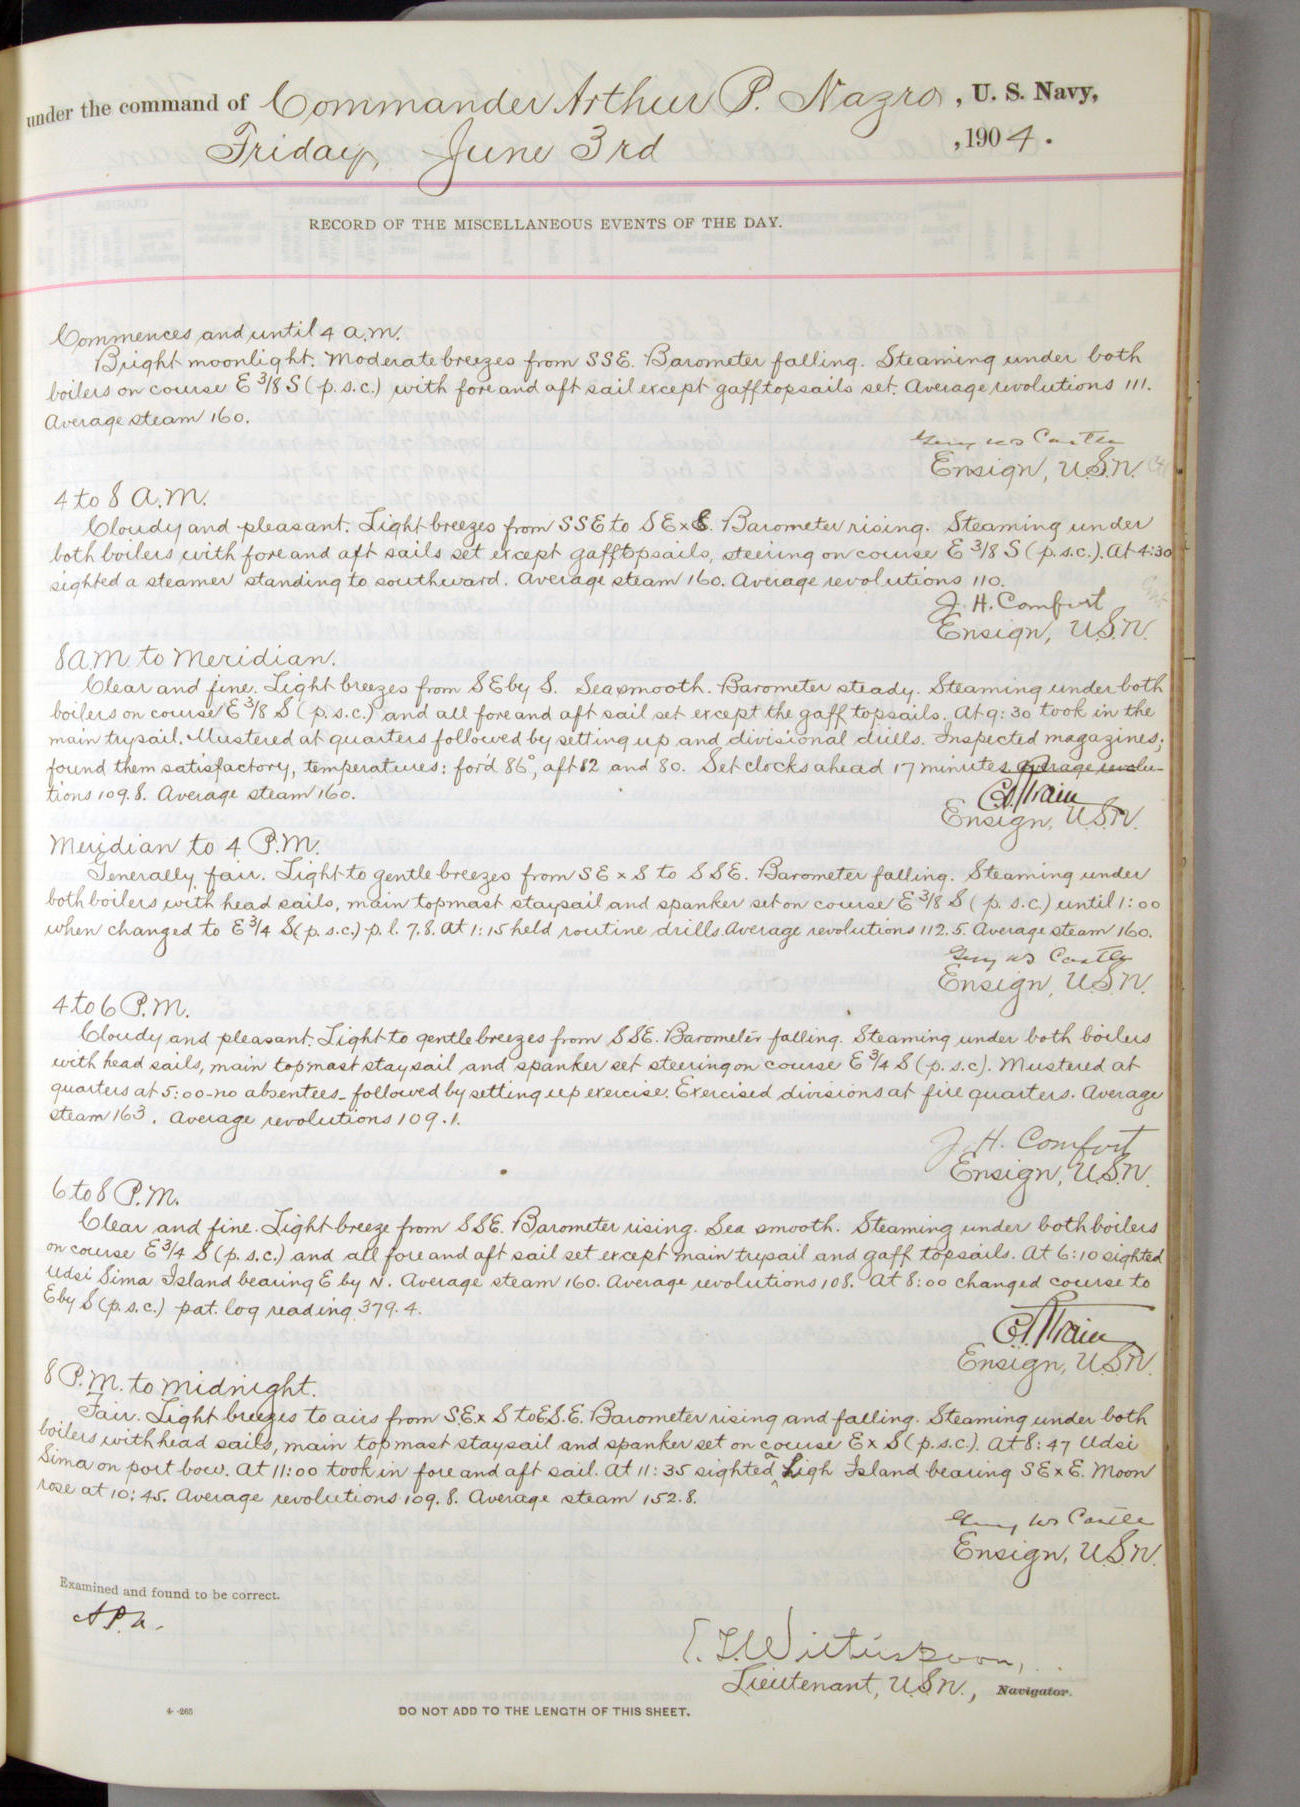 under the command of Commander Arthur P. Nazro, U. S. Navy,
Friday, June 3rd, 1904.
RECORD OF THE MISCELLANEOUS EVENTS OF THE DAY.
Commences and until 4 a.m.
Bright moonlight. Moderate breezes from SSE. Barometer falling. Steaming under both
boilers on course E 3/8 S (p.s.c.) with fore and aft sail except gafftopsails set. Average revolutions 111.
Average steam 160.
Guy W S Castle
Ensign, U.S.N.
4 to 8 A.M.
Cloudy and pleasant. Light breezes from SSE to SE x S. Barometer rising. Steaming under
both boilers with fore and aft sails set except gafftopsails, steering on course E 3/8 S (p.s.c.). At 4:30
sighted a steamer standing to southward. Average steam 160. Average revolutions 110.
J. H. Comfort
Ensign, U.S.N.
8 A.M. to Meridian.
Clear and fine. Light breezes from SE by S. Sea smooth. Barometer steady. Steaming under both
boilers on course E 3/8 S (p.s.c.) and all fore and aft sail set except the gaff topsails. At 9:30 took in the
main trysail. Mustered at quarters followed by setting up and divisional drills. Inspected magazines;
found them satisfactory, temperatures: for'd 86°, aft 82 and 80. Set clocks ahead 17 minutes. Average revolu-
tions 109.8. Average steam 160.
C.R. Train
Ensign, U.S.N.
Meridian to 4 P.M.
Generally fair. Light to gentle breezes from SE x S to SSE. Barometer falling. Steaming under
both boilers with head sails, main topmast staysail and spanker set on course E 3/8 S (p.s.c.) until 1:00
when changed to E 3/4 S (p.s.c.) p.l. 7.8. At 1:15 held routine drills. Average revolutions 112.5. Average steam 160.
Guy W S Castle
Ensign, U.S.N.
4 to 6 P.M.
Cloudy and pleasant. Light to gentle breezes from SSE. Barometer falling. Steaming under both boilers
with head sails, main topmast staysail and spanker set steering on course E 3/4 S (p.s.c). Mustered at
quarters at 5:00 - no absentees - followed by setting up exercise. Exercised divisions at fire quarters. Average
steam 163. Average revolutions 109.1.
J. H. Comfort
Ensign, U.S.N.
6 to 8 P.M.
Clear and fine. Light breeze from SSE. Barometer rising. Sea smooth. Steaming under both boilers
on course E 3/4 S (p.s.c.) and all fore and aft sail set except main trysail and gaff topsails. At 6:10 sighted
Udsi Sima Island bearing E by N. Average steam 160. Average revolutions 108. At 8:00 changed course to
E by S (p.s.c.) pat. log reading 379.4.
C.R. Train
Ensign, U.S.N.
8 P.M. to midnight.
Fair. Light breezes to airs from S.E x S to E S.E. Barometer rising and falling. Steaming under both
boilers with head sails, main topmast staysail and spanker set on course E x S (p.s.c.). At 8:47 Udsi
Sima on port bow. At 11:00 took in fore and aft sail. At 11:35 sighted a high Island bearing SE x E. Moon
rose at 10:45. Average revolutions 109.8. Average steam 152.8.
Guy W S Castle
Ensign, U.S.N.
Examined and found to be correct.
A P. N.
Lieutenant, U.S.N., Navigator.
4-265
DO NOT ADD TO THE LENGTH OF THIS SHEET.